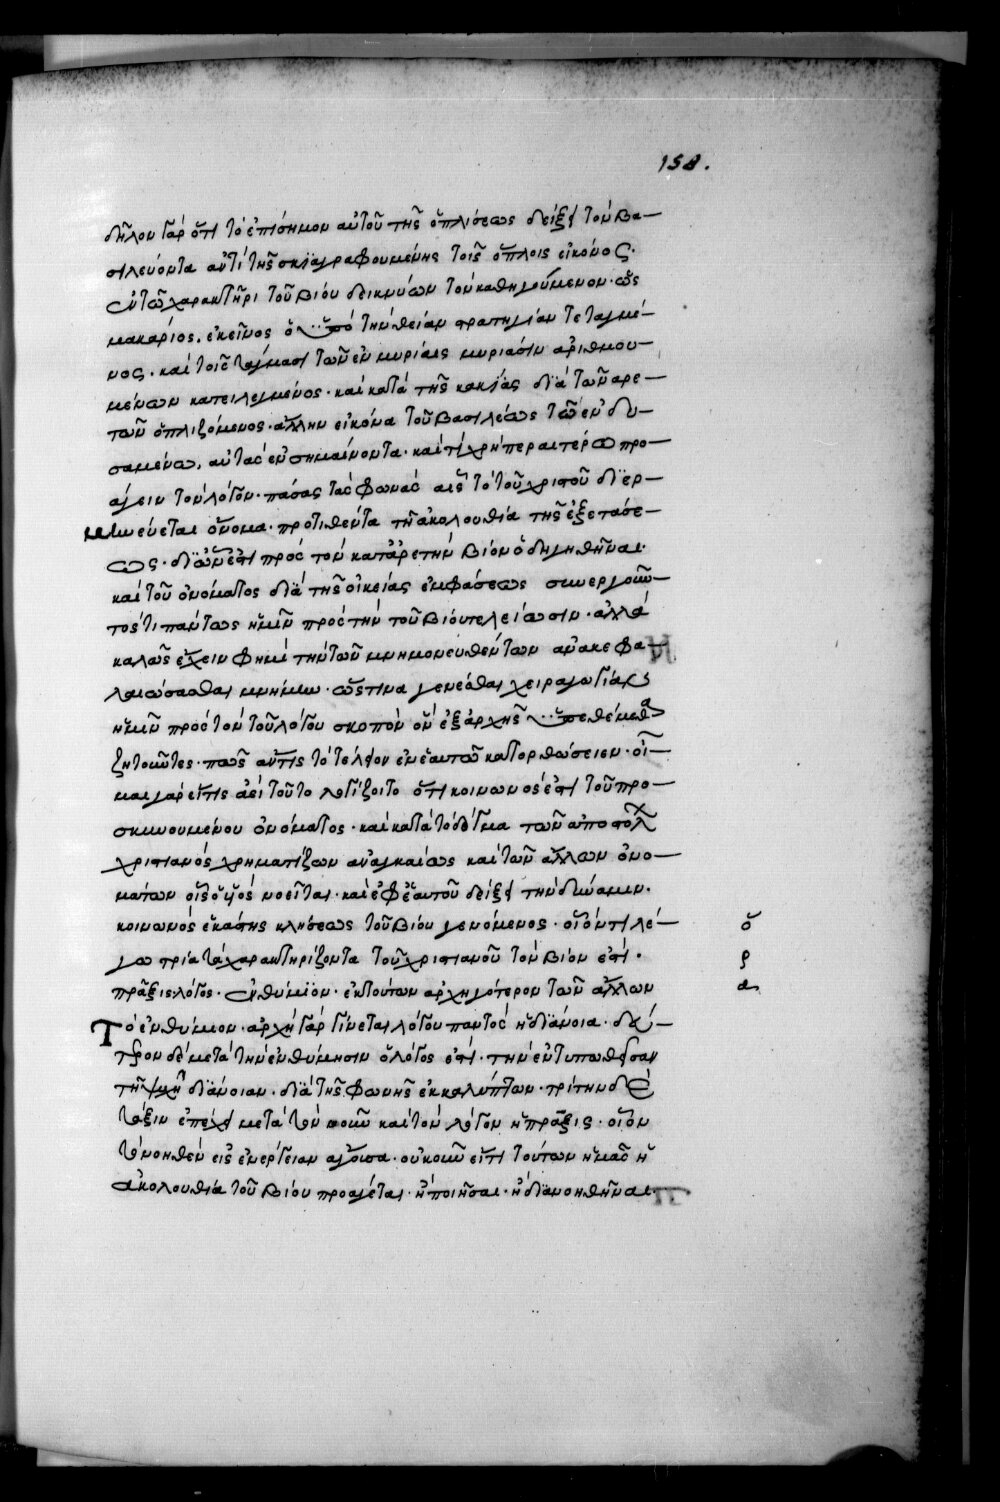 158.
δῆλον γὰρ ὅτι τὸ ἐπίσημον αὐτοῦ τῆς ὁπλίσεως δείξει τὸν βα-
σιλεύοντα ἀντὶ τῆς σκιαγραφουμένης τοῖς ὅπλοις εἰκόνος.
ἐν τῶ χαρακτῆρι τοῦ βίου δεικνύων τὸν καθηγούμενον. ὡς
μακάριος. ἐκεῖνος ὁ ὑπὸ τὴν θείαν στρατηγίαν τεταγμέ-
νος. καὶ τοῖς τάγμασι τῶν ἐν μυρίαις μυριάσιν ἀριθμου-
μένων κατειλεγμένος. καὶ κατὰ τῆς κακίας διὰ τῶν ἀρε-
τῶν ὁπλιζόμενος. ἄλλην εἰκόνα τοῦ βασιλέως τῶ ἐνδυ-
σαμένω. αὐτὰς ἐνσημαίνοντα. καὶ τί χρὴ περαιτέρω προ-
άγειν τὸν λόγον. πάσας τὰς φωνὰς αἷς τὸ τοῦ χριστοῦ διερ-
μηνεύεται ὄνομα. προτιθέντα τῇ ἀκολουθία τῆς ἐξετάσε-
ως. δι' ὧν ἔστι πρὸς τὸν κατ' ἀρετὴν βίον ὁδηγηθῆναι.
καὶ τοῦ ὀνόματος διὰ τῆς οἰκείας ἐμφάσεως συνεργοῦν-
τος τι πάντως ἡμῖν πρὸς τὴν τοῦ βίου τελείωσιν. ἀλλὰ
καλῶς ἔχειν φημὶ τὴν τῶν μνημονευθέντων ἀνακεφα-
λαιώσασθαι μνήμην. ὥς τινα γενέσθαι χειραγωγίαν
ἡμῖν πρὸς τὸν τοῦ λόγου σκοπὸν ὃν ἐξ ἀρχῆς ὑπεθέμεθα
ζητοῦντες. πῶς ἄν τις τὸ τέλειον ἐν ἑαυτῶ κατορθώσειεν. οἶ-
μαι γὰρ εἴ τις ἀεὶ τοῦτο λογίζοιτο ὅτι κοινωνός ἐστι τοῦ προ-
σκυνουμένου ὀνόματος. καὶ κατὰ τὸ δόγμα τῶν ἀποστόλων
χριστιανὸς χρηματίζων ἀναγκαίως καὶ τῶν ἄλλων ὀνο-
μάτων οἷς ὁ χριστὸς νοεῖται. καὶ ἐφ' ἑαυτοῦ δείξει τὴν δύναμιν.
κοινωνὸς ἑκάστης κλήσεως τοῦ βίου γενόμενος. οἷόν τι λέ-
γω τρία τὰ χαρακτηρίζοντα τοῦ χριστιανοῦ τὸν βίον ἐστί.
πρᾶξις λόγος. ἐνθύμιον. ἐκ τούτων ἀρχηγότερον τῶν ἄλλων
Τὸ ἐνθύμιον. ἀρχὴ γὰρ γίνεται λόγου παντὸς ἡ διάνοια. δεύ-
τερον δὲ μετὰ τὴν ἐνθύμησιν ὁ λόγος ἐστί. τὴν ἐντυπωθεῖσαν
τῇ ψυχῇ διάνοιαν. διὰ τῆς φωνῆς ἐκκαλύπτων. τρίτην δὲ
τάξιν ἐπέχει μετὰ τὸν νοῦν καὶ τὸν λόγον ἡ πρᾶξις. οἷον
τὸ νοηθὲν εἰς ἐνέργειαν ἄγουσα. οὐκοῦν εἴ τι τούτων ἡμᾶς ἡ
ἀκολουθία τοῦ βίου προάγεται. ἢ ποιῆσαι. ἢ διανοηθῆναι.
ὅ
ρ
α